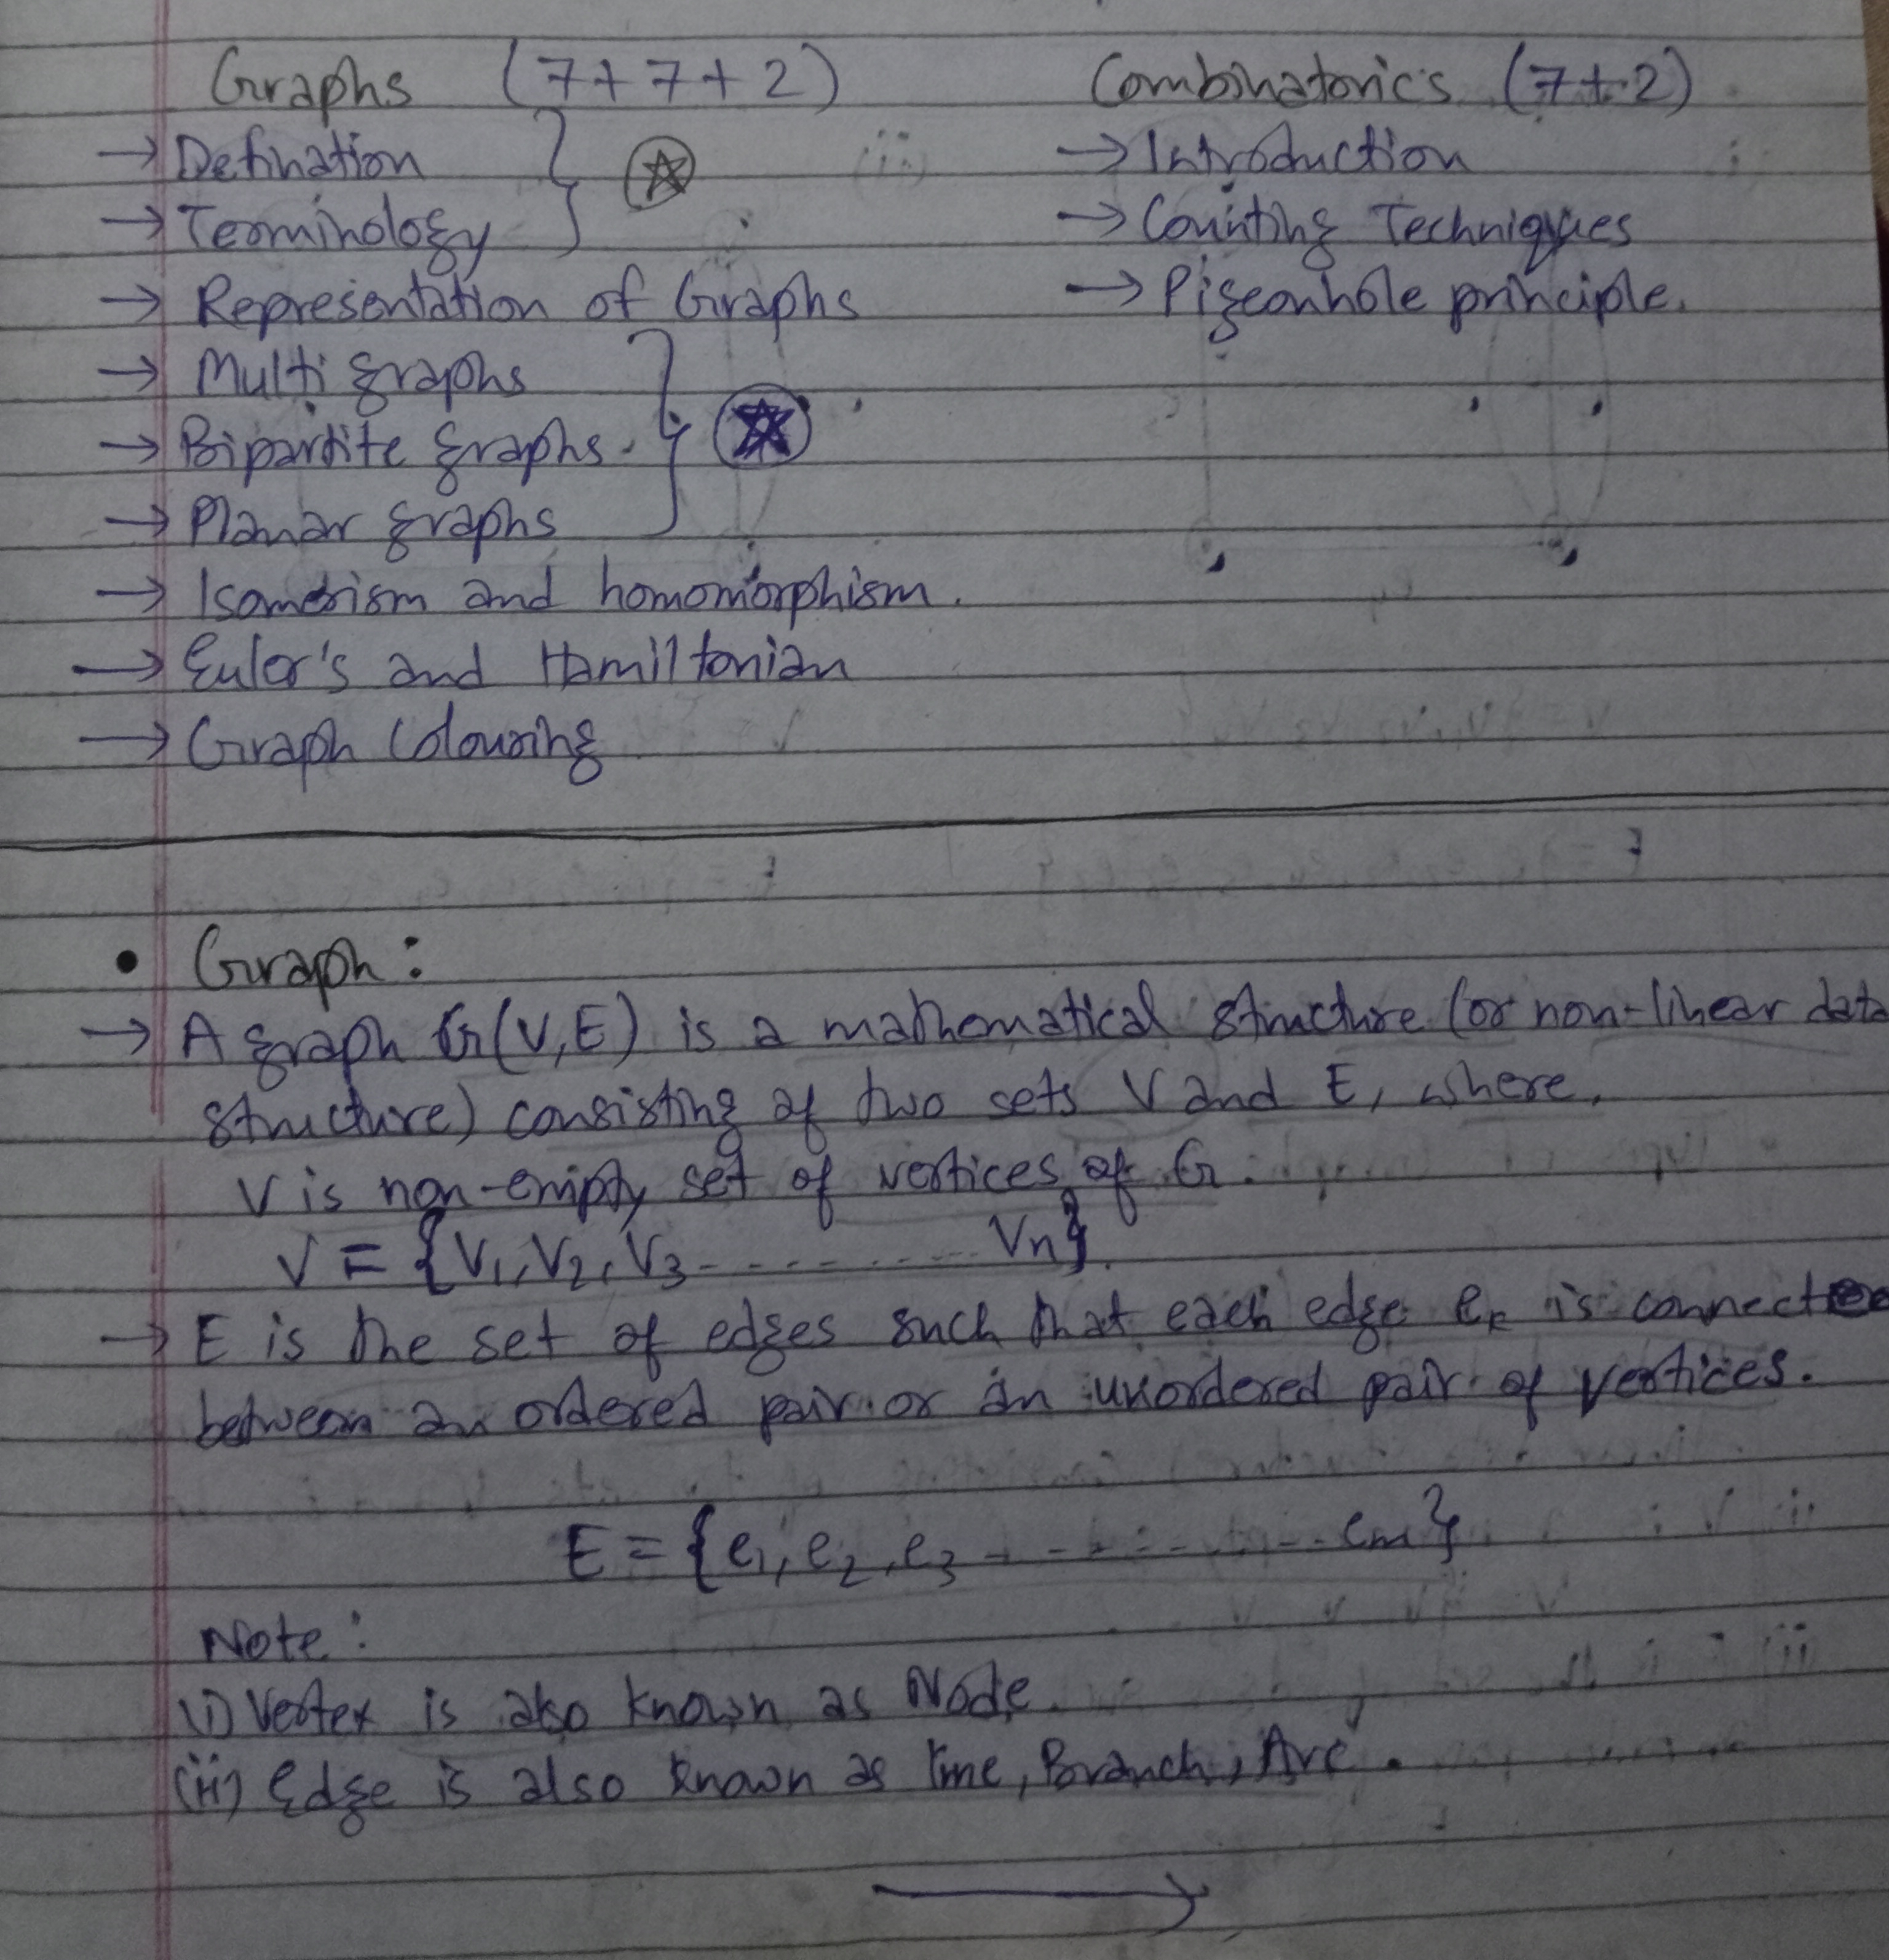 Graphs (7+7+2)
→ Defination
→ Terminology
→ Representation of Graphs
→ Multi graphs
→ Bipartite graphs.
→ Planar graphs
→ Isomerism and homomorphism.
→ Euler's and Hamiltonian
→ Graph Colouring
Combinatorics (7+2)
→ Introduction
→ Counting Techniques
→ Pigeonhole principle.
• Graph:
→ A graph G(V,E) is a mathematical structure (or non-linear data
structure) consisting of two sets V and E, where,
V is non-empty set of vertices of G.
V = {V₁,V₂,V₃----------Vn}.
→ E is the set of edges such that each edge eₖ is connected
between an ordered pair or an unordered pair of vertices.
E = {e₁,e₂,e₃----------em}
Note:
(i) Vertex is also known as Node.
(ii) Edge is also known as line, Branch, Arc.